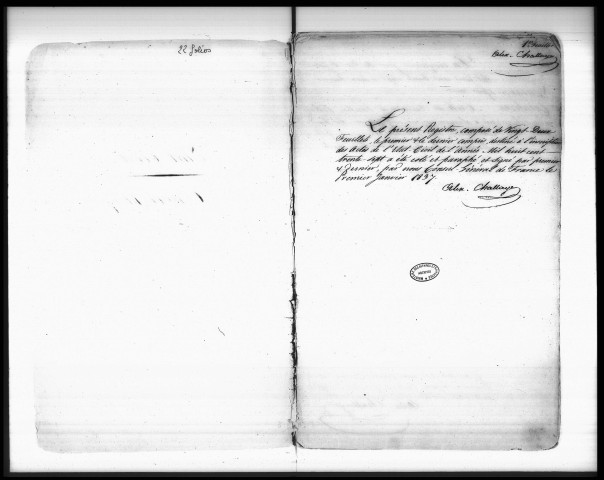 22 folios
Alex. Challaye
Le présent Registre, composé de Vingt-Deux
Feuillets le premier & le dernier compris, destiné à l'inscription
des Actes de l'Etat Civil de l'Année Mil huit cent
trente sept a été coté et paraphé et signé par premier
& dernier, par nous Consul Général de France le
Premier Janvier 1837
Alex. Challaye